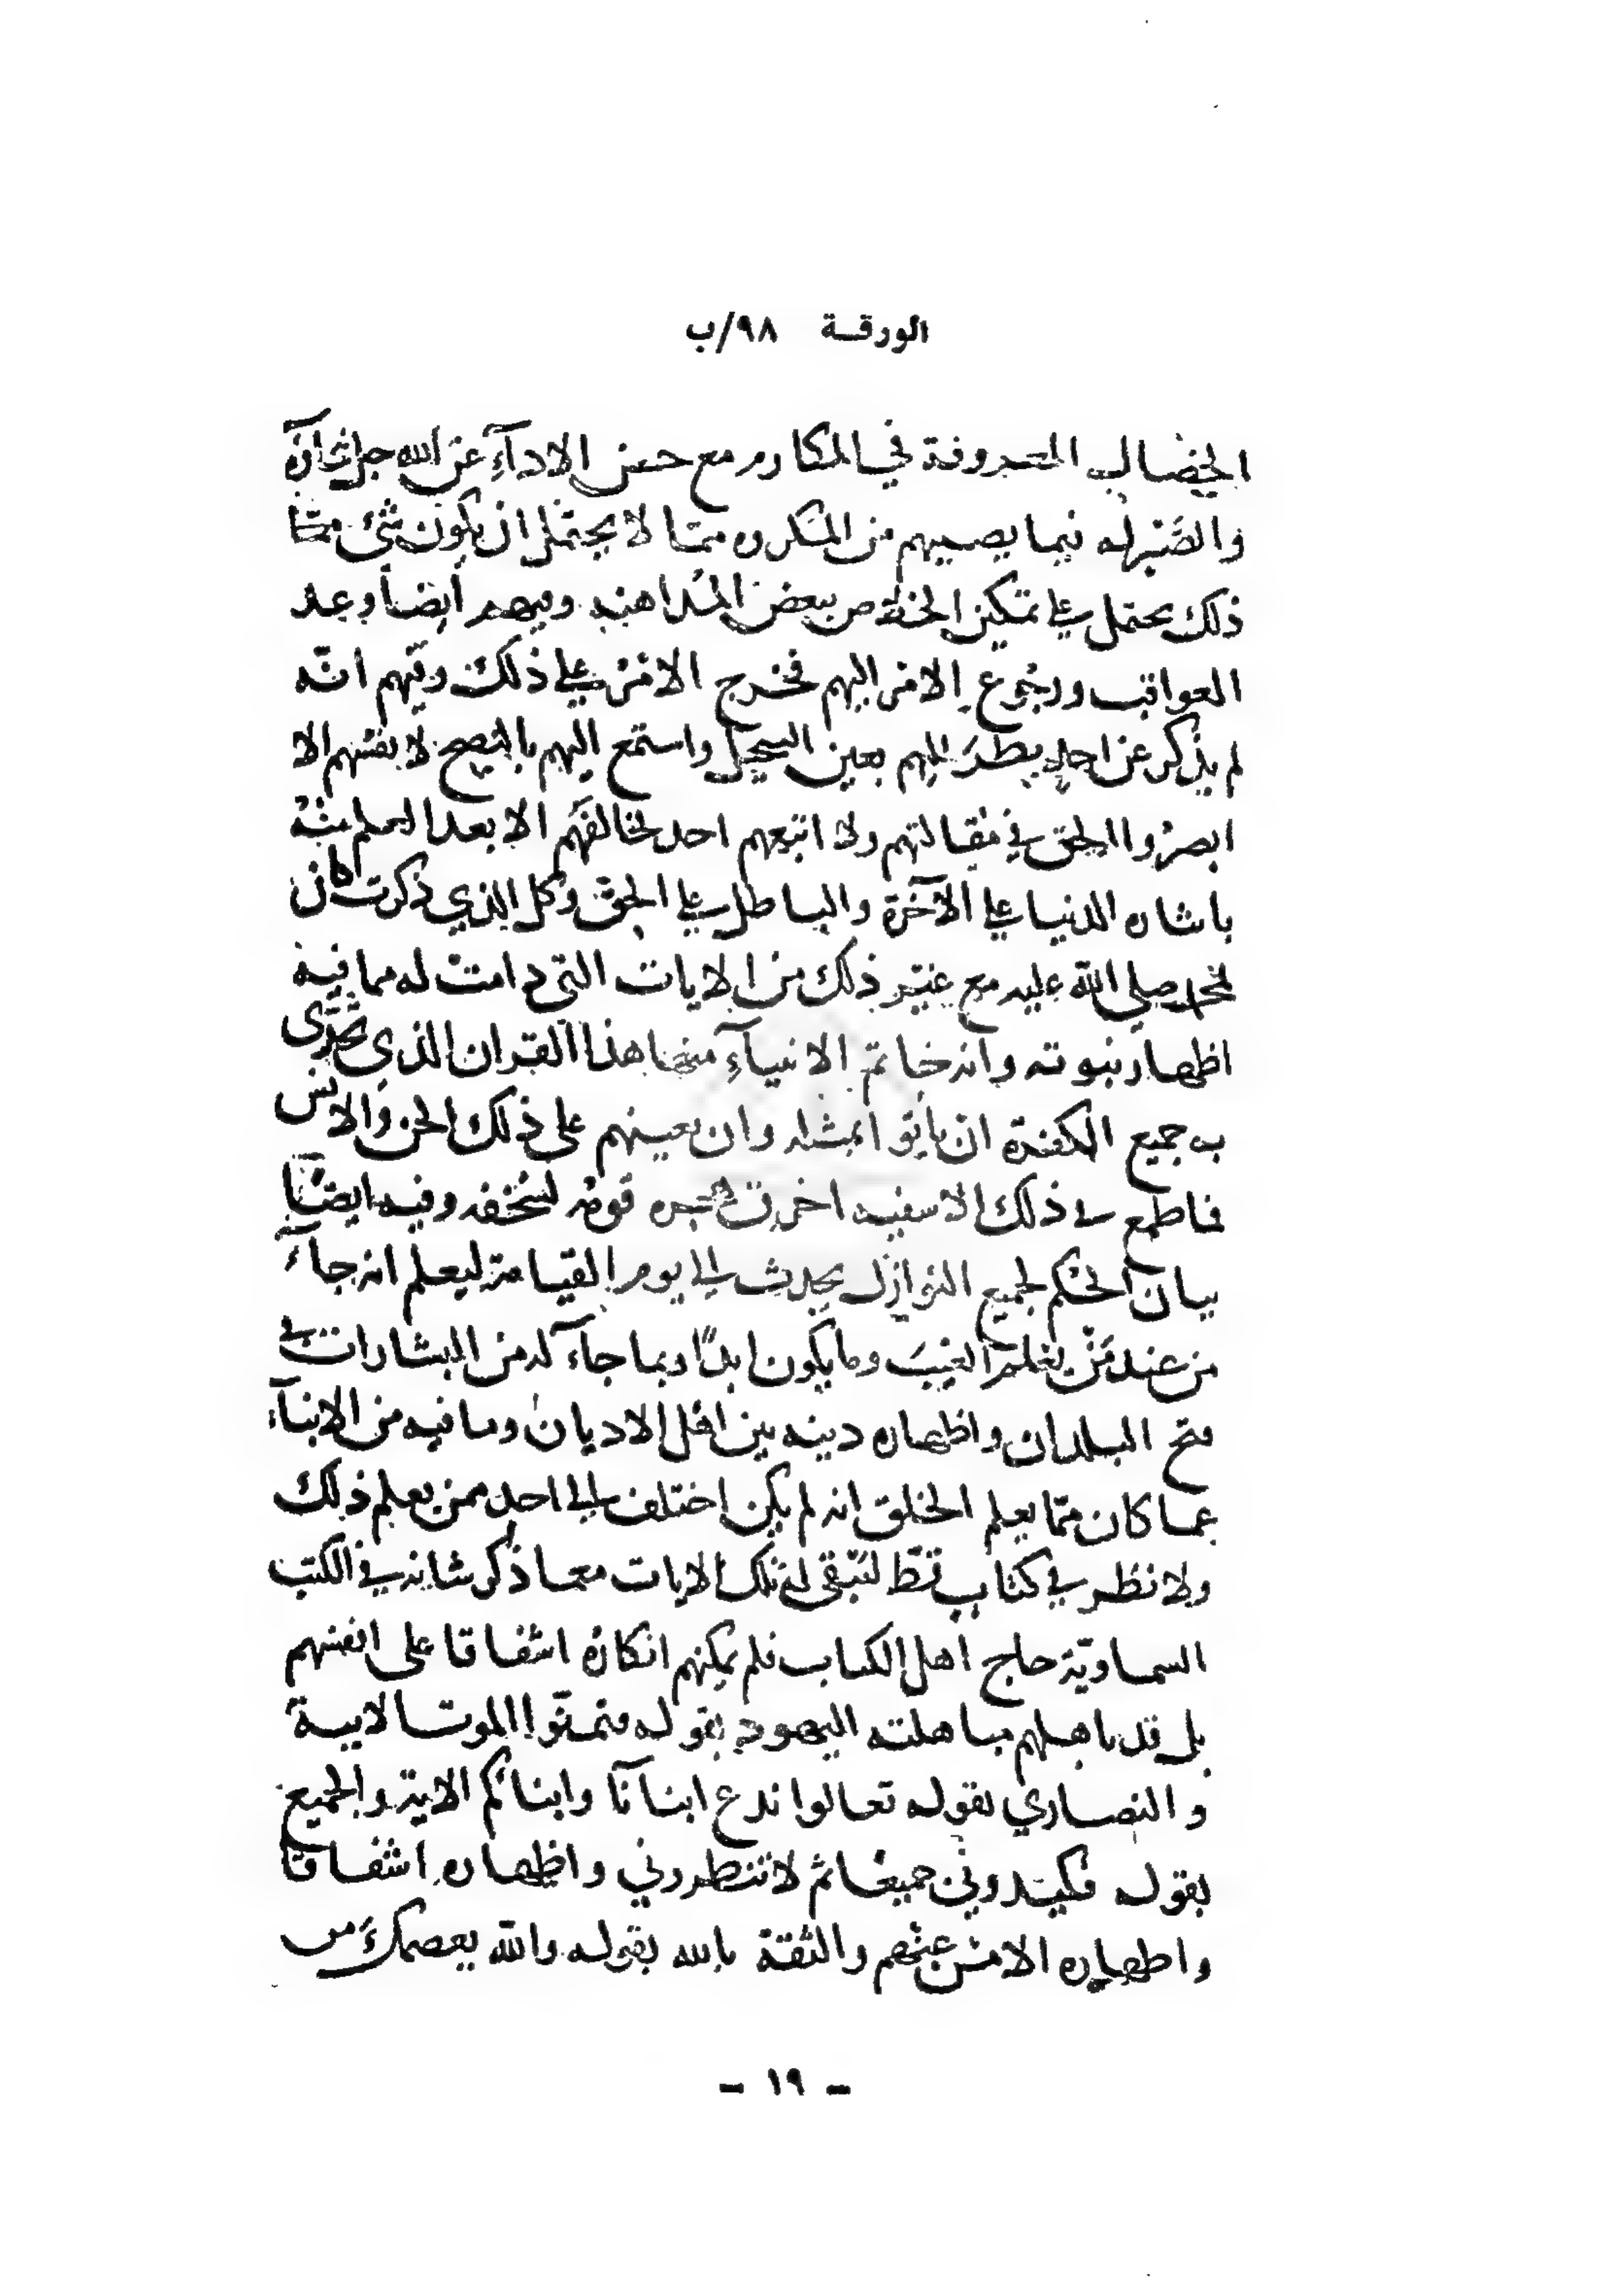 الورقة ٩٨/ب
الخصال المعروفة في المكارم مع حسن الاداء عن الله جل ثناؤه
والصبر له فيما يصيبهم من المكروه مما لا يحتمل ان يكون شئ مما
ذلك يحتمل على تمكين الخلق من بعض المداهنه وفيهم ايضا وعد
العواقب ورجوع الامر اليهم فخرج الامر على ذلك وفيهم انه
لم يذكر عن احد نظر اليهم بعين واستمع اليهم بالنصح لا بفتنهم الا
ابصروا الحق في مقالتهم ولا اتبعهم احد لخالفهم الا بعد العلم منه
باىثاره الدنيا على الآخرة والباطل على الحق وكل الذي ذكرت كان
لمحمد صلى الله عليه مع غير ذلك من الايات التي دامت له مما فيه
اظهار نبوته وانه خاتم الانبياء منها هذا القران الذي تحدى
به جميع الكفرة ان ياتوا بمثله وان يعينهم على ذلك الجن والانس
فما طمع في ذلك الا سفيه اخرق قومه لسخفه وفيه ايضا
بيان الحكم لجميع النوازل يحدث الى يوم القيامة ليعلم انه جاء
من عند من يعلم الغيب وما يكون ابدا وبما جاء له من البشارات في
فتح البلدان واظهار دينه بين اهل الاديان وما فيه من الانباء
عما كان مما يعلم الخلق انه لم يكن اختلف الى احد ممن يعلم ذلك
ولا نظر في كتاب قط لتبقى له تلك الايات معما ذكر شانه في الكتب
السماوية حاج اهل الكتاب فلم يمكنهم انكاره اشفاقا على انفسهم
بل قد باهلهم مباهلته اليهود بقوله فتمنوا الموت الاية
والنصارى بقوله تعالوا ندع ابنانا وابنائكم الاية والجميع
بقوله فكيدوني جميعا ثم لا تنظروني واظهاره اشفاقا
واظهاره الامن عنهم والثقة بالله بقوله والله يعصمك من
- ١٩ -